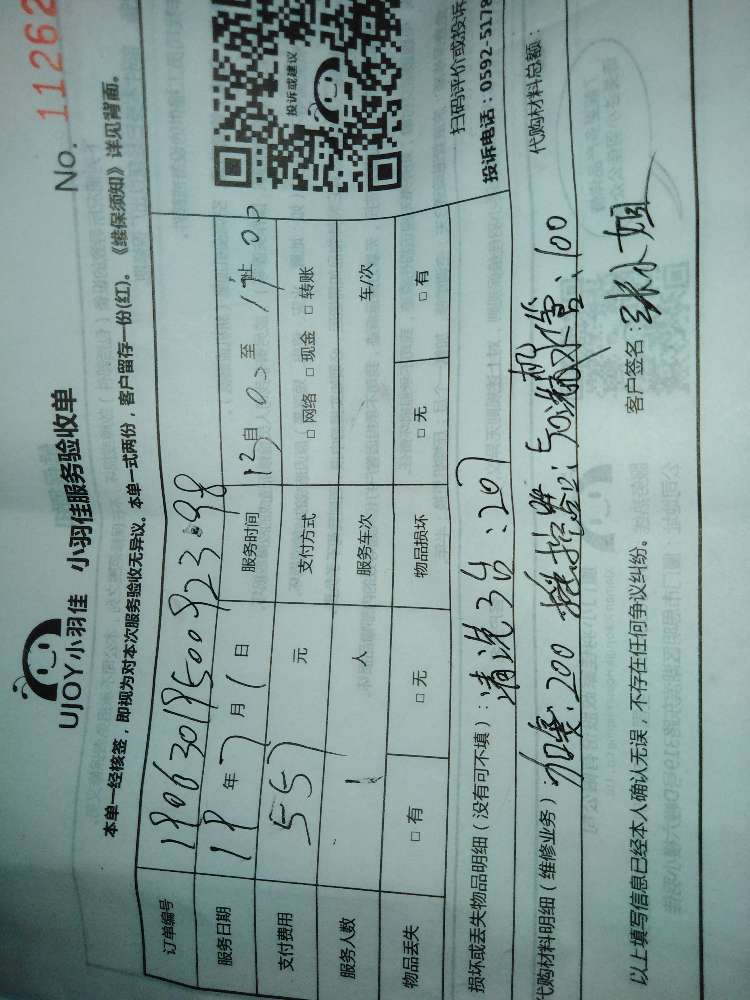 UJOY小羽佳 小羽佳服务验收单
No. 11262
本单一经核签，即视为对本次服务验收无异议。本单一式两份，客户留存一份(红)。《维保须知》详见背面。
订单编号
服务日期 19 年 7 月 1 日 服务时间 13 自 00 至 17 止 00
支付费用 557 元 支付方式 □ 网络 □ 现金 □ 转账
服务人数 1 人 服务车次 车/次
物品丢失 □ 有 □ 无 物品损坏 □ 无 □ 有
投诉或建议
扫码评价或投诉
投诉电话：0592-5178
损坏或丢失物品明细（没有可不填）：清洗3台：207
代购材料明细（维修业务）：加氟：200 100
代购材料总额：
以上填写信息已经本人确认无误，不存在任何争议纠纷。
客户签名：张小姐